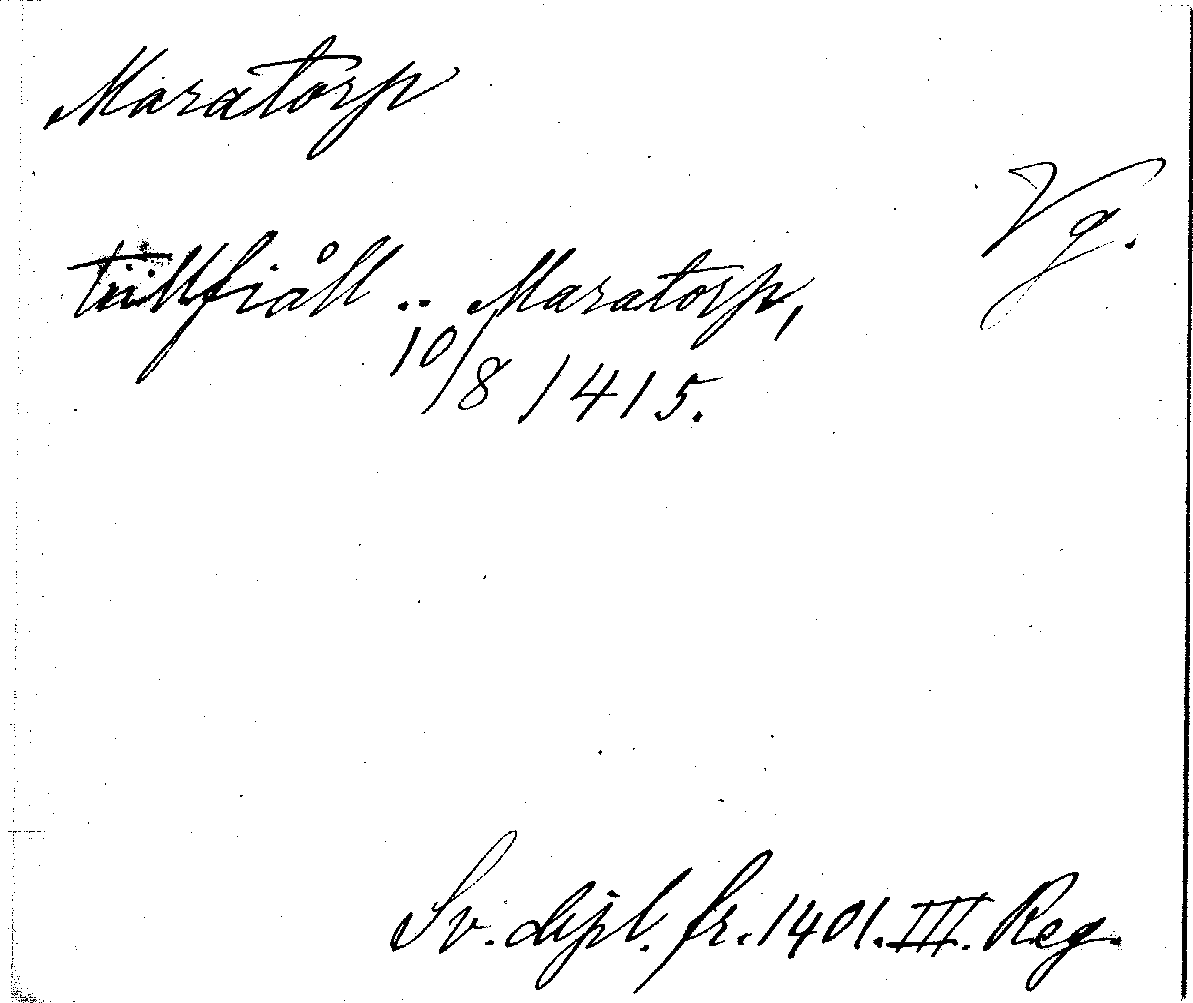 Maratorp
Vg.
tiillfiåll .. Maratorp,
10/8 1415.
Sv. dipl. fr. 1401. III. Reg.